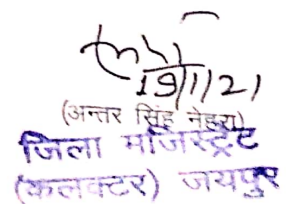 19/1/21
(अन्तर सिंह नेहरा)
जिला मजिस्ट्रेट
(कलक्टर) जयपुर